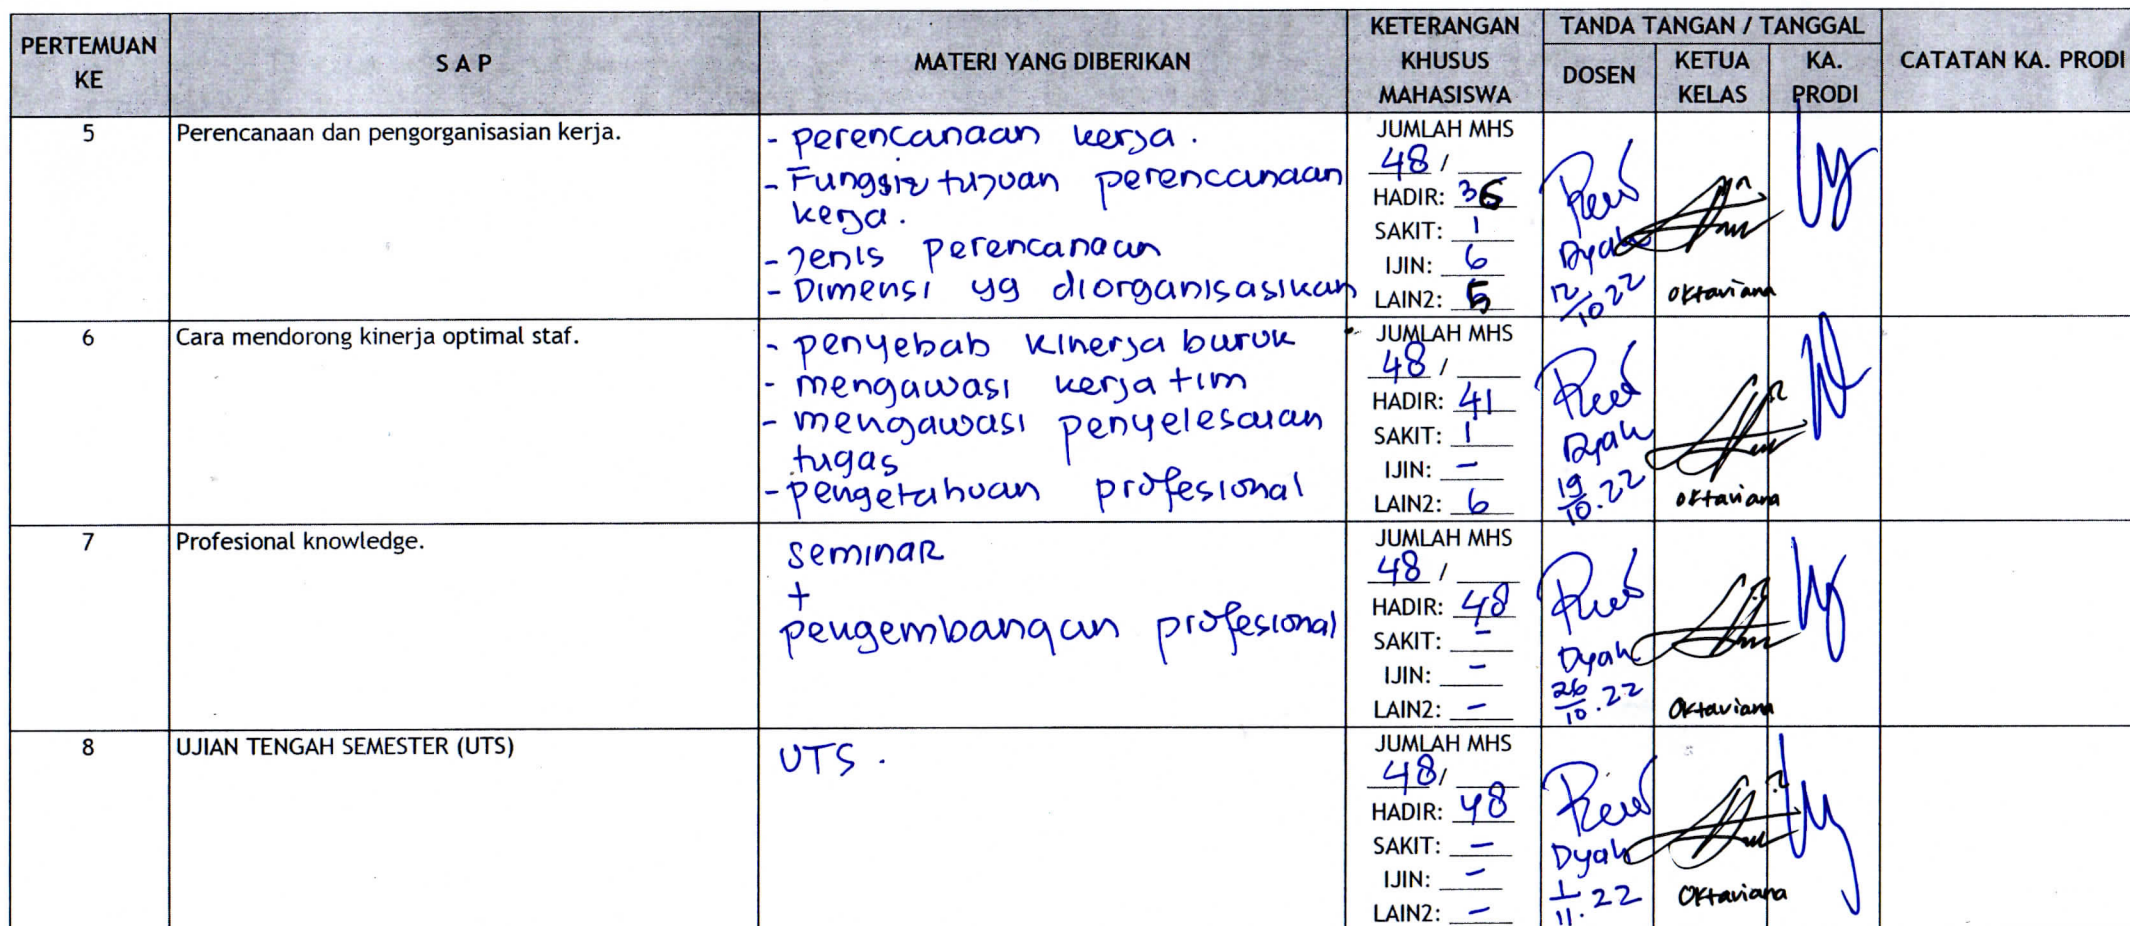 PERTEMUAN KE
S A P
MATERI YANG DIBERIKAN
KETERANGAN KHUSUS MAHASISWA
TANDA TANGAN / TANGGAL
DOSEN
KETUA KELAS
KA. PRODI
CATATAN KA. PRODI
5
Perencanaan dan pengorganisasian kerja.
- perencanaan kerja.
- Fungsi & tujuan perencanaan
kerja.
- Jenis perencanaan
- Dimensi yg diorganisasikan
JUMLAH MHS
48 /
HADIR: 36
SAKIT: 1
IJIN: 6
LAIN2: 5
Dyah
12/10 22
Oktaviana
6
Cara mendorong kinerja optimal staf.
- penyebab kinerja buruk
- mengawasi kerja tim
- mengawasi penyelesaian
tugas
- pengetahuan profesional
JUMLAH MHS
48 /
HADIR: 41
SAKIT: 1
IJIN: -
LAIN2: 6
Dyah
19/10.22
Oktaviana
7
Profesional knowledge.
seminar
+
pengembangan profesional
JUMLAH MHS
48 /
HADIR: 48
SAKIT: -
IJIN: -
LAIN2: -
Dyah
26/10.22
Oktaviana
8
UJIAN TENGAH SEMESTER (UTS)
UTS.
JUMLAH MHS
48/
HADIR: 48
SAKIT: -
IJIN: -
LAIN2: -
Dyah
1/11.22
Oktaviana